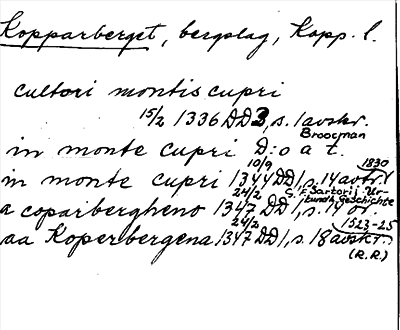 Kopparberget, bergslag, Kopp. l.
cultori montis cupri
15/2 1336 DD3, s. 1 avskr.
Broocman
in monte cupri D:o a t.
10/9 1830
in monte cupri 1344 DD1, s. 14 avtr. i
24/2 G. F. Sartorij Ur-
kundl. Geschichte
a coparbergheno 1347 DD1, s. 17 or.
24/2 1523-25
aa Koperbergena 1347 DD1, s. 18 avskr.
(R.R.)